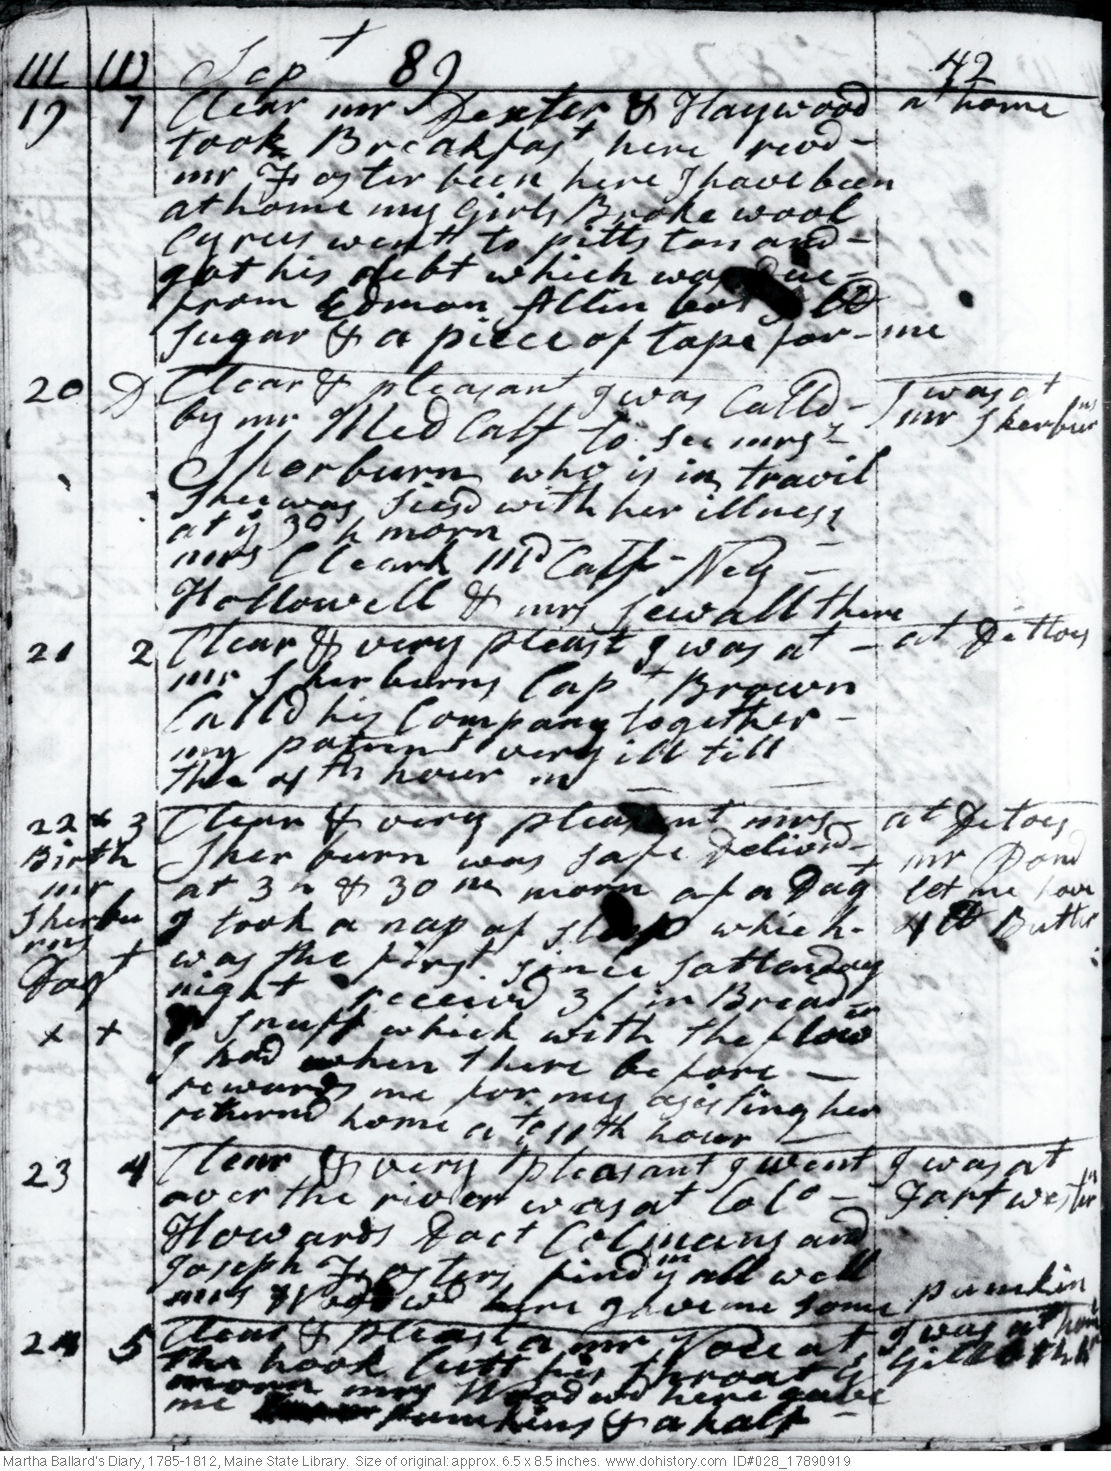 Sept 89 42
19 7 Clear mr Dexter & Haywood at home
took Breakfast here
mr Foster been here I have been
at home my Girls Broke wool
Cyrus went to pittston and
got his debt which was due
from Edmon Allin bot lb
Sugar & a piece of tape for me
20 D Clear & pleasant I was Calld I was at
by mr Med Calf to see mrs mr Sherburns
Sherburn who is in travil
Shee was siesd with her illness
at ys 3d h morn
mrs Cleark Md Calf Nely
Hollowell & mrs Sewall there
21 2 Clear & very pleast I was at at Dittoes
mr Sherburns Capt Brown
Calld his Company together
my patient very ill till
thee 4th hour m
22 3 Clear & very pleasent mrs at Ditoes
Birth Sherburn was safe Delivrd mr Pond
mr at 3 h & 30 m morn of a Dagt let me have
Sherbu I took a nap of sleep which 4 lb Butter
rns was the first since satterday
Dagt night receivd 3/ in Bread
x x & snuff which with the flow
er
I had when there before
rewards me for my asisting her
returnd home at 11th hour
23 4 Clear & very pleasant I went I was at
over the river was at Colo Fort western
Howards Doct Colmans and
Joseph Fosters find ym all well
mrs Woodwd here gave me some pumkin
24 5 Clear & pleast a mr Vose at I was at home
the hook Cutt his throat ys
morn mrs Woodwd here gave
me pumkins & a half
Martha Ballard's Diary, 1785-1812, Maine State Library. Size of original: approx. 6.5 x 8.5 inches. www.dohistory.com ID#028_17890919